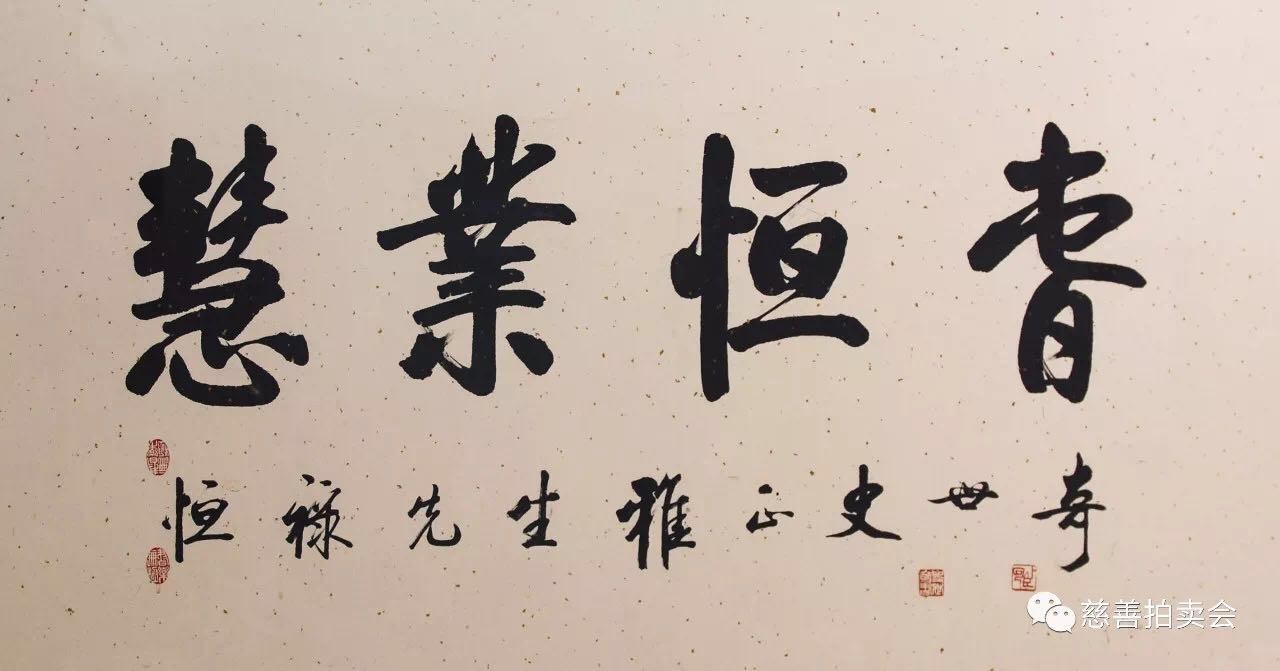 慧業恒春
恒禄先生雅正史世奇
慈善拍卖会